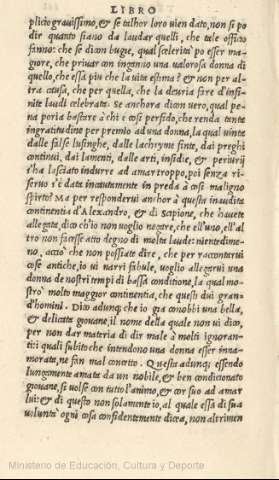 LIBRO
plicio grauissimo, & se talhor loro vien dato, non si po
dir quanto siano da laudar quelli, che tale officio
fanno: che se dicon bugie, qual sceleritá po esser ma
giore, che priuar con inganno una valorosa donna di
quello, che essa piu che la vita estima? & non per al
tra causa, che per quella, che la deuria fare d'infi
nite laudi celebrata. Se anchora dicon vero, qual pe
na poria bastare á chi è cosi perfido, che renda tanta
ingratitudine per premio ad una donna, la qual uinta
dalle false lusinghe, dalle lachryme finte, dai preghi
continui, dai lamenti, dalle arti, insidie, & periurij
s'ha lasciato indurre ad amar troppo, poi senza ri-
serfuo s'è data incautamente in preda á cosi maligno
spirto? Ma per responderui anchor á questa inaudita
continentia d'Alexandro, & di Scipione, che hauete
allegata, dico ch'io non uoglio negare, che & l'uno, & l'al
tro non facesse atto degno di molta laude: nientedime-
no, acciò che non possiate dire, che per raccontarui
cose antiche, io ui narri fabule, uoglio allegarui una
donna de nostri tempi di bassa conditione, la qual mo-
stró molto maggior continentia, che questi dui gran-
d'homini. Dico adunq; che io giá conobbi una bella,
& delicata giouane, il nome della quale non ui dico,
per non dar materia di dir male á molti ignoran-
ti: i quali subito che intendono una donna esser inna-
morata, ne fan mal concetto. Questa adunq; essendo
lungamente amata da un nobile, & ben conditionato
giouane, si uolse con tutto l'animo, & cor suo ad amar
lui: & di questo non solamente io, al quale essa di sua
voluntá ogni cosa confidentemente dicea, non altrimen
Ministerio de Educación, Cultura y Deporte